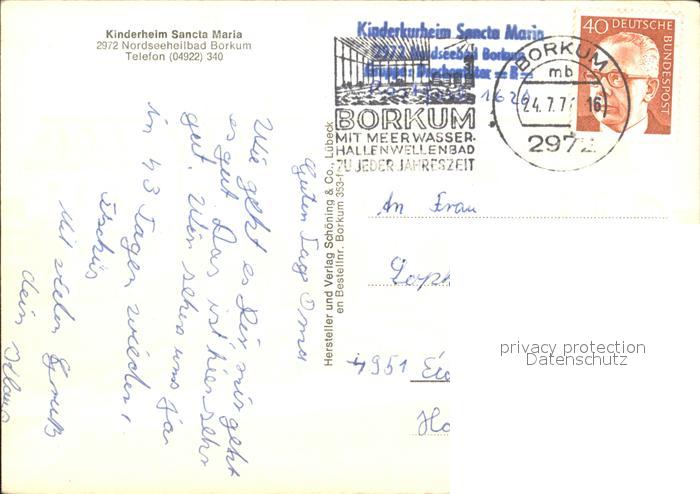 Kinderheim Sancta Maria
2972 Nordseeheilbad Borkum
Telefon (04922) 340
Kinderkurheim Sancta Maria
2972 Nordseebad Borkum
Gruppe: - B -
1624
BORKUM
MIT MEERWASSER-
HALLENWELLENBAD
ZU JEDER JAHRESZEIT
BORKUM
mb
24.7.7 16
2972
40 DEUTSCHE
BUNDESPOST
Hersteller und Verlag Schöning & Co., Lübeck
en Bestellnr. Borkum 353-f
Guten Tag Oma
Wie geht es Dir mir geht
es gut. Das ist hier sehr
gut. Wir sehen uns ja
in 43 Tagen wieder!
Tschüs
Mit vielen Gruß
dein Klaus
An Frau
Soph
4951 Eic
Ha
privacy protection
Datenschutz